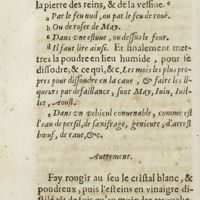 la pierre des reins, & de la vessiue.
a Par le feu nud, ou par le feu de rouë.
b Ou de rosee de May.
c Dans vne estuue, ou dessus le four.
d Il faut lire ainsi. Et finalement met-
trez la poudre en lieu humide, pour se
dissoudre, & ce qui, &c. Les mois les plus pro-
pres pour dissoudre en la caue, & faire les li-
queurs par defaillance, sont May, Iuin, Iuil-
let, Aoust.
e Dans vn vehicul conuenable, comme est
l'eau de persil, de saxifrage, genieure, d'arrest
bœuf, de raue, &c.
Autrement.
Fay rougir au feu le cristal blanc, &
poudreux, puis l'esteins en vinaigre di-